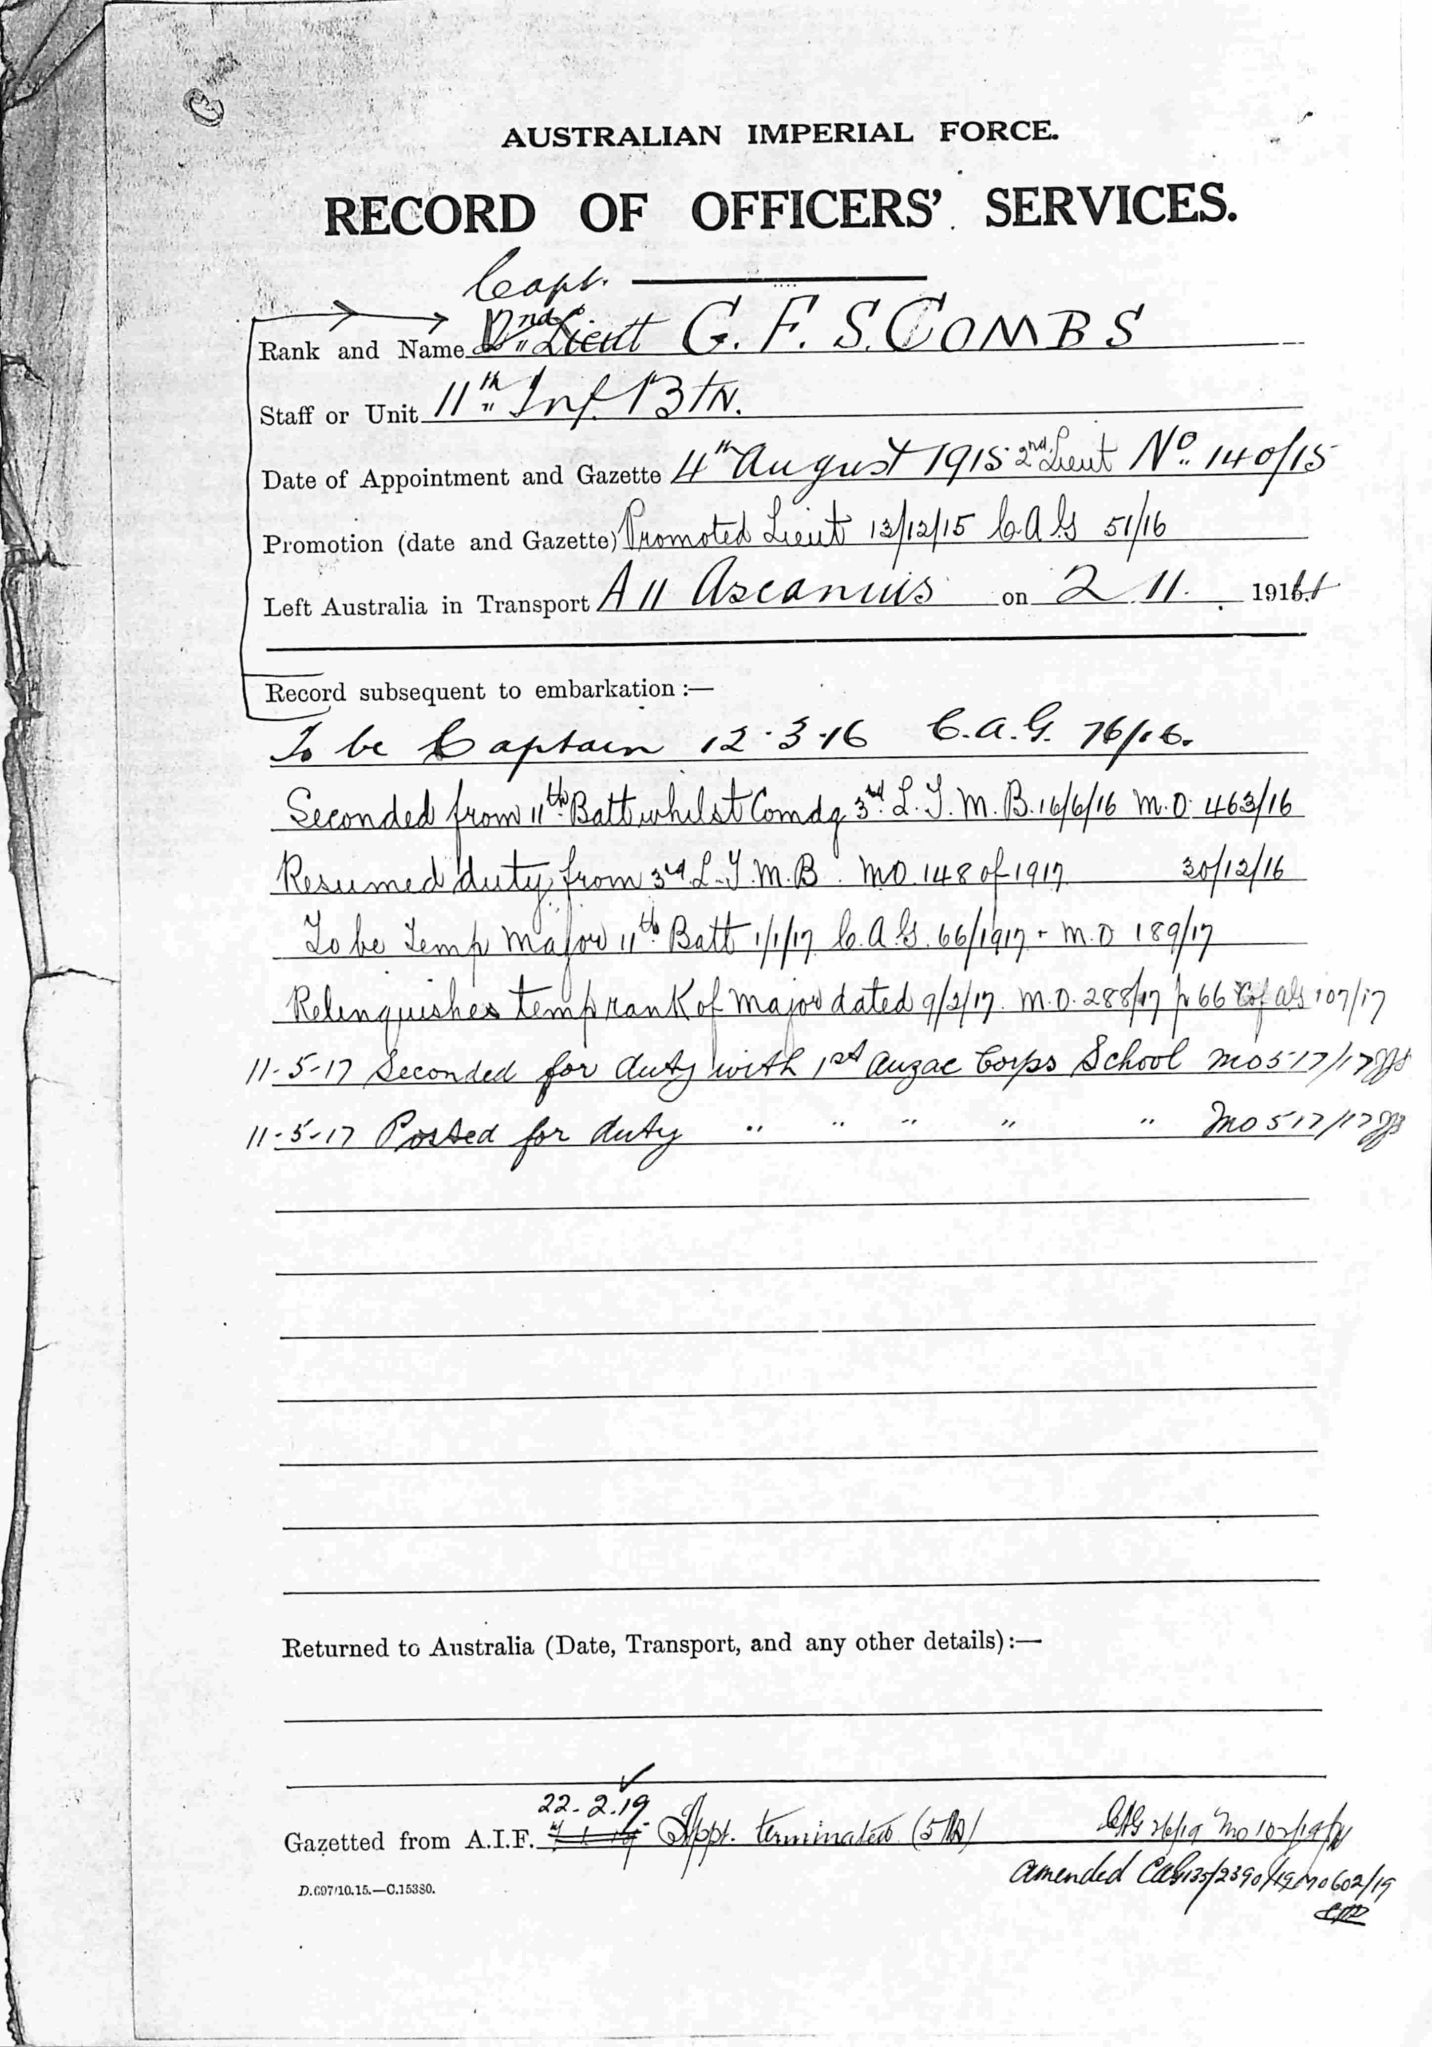 AUSTRALIAN IMPERIAL FORCE.
RECORD OF OFFICERS' SERVICES.
Capt.
Rank and Name 2nd Lieut G. F. S. COMBS
Staff or Unit 11th Inf. Btn.
Date of Appointment and Gazette 4th August 1915 2nd Lieut No. 140/15
Promotion (date and Gazette) Promoted Lieut 13/12/15 C.A.G 51/16
Left Australia in Transport A 11 Ascanius on 2 11. 191
Record subsequent to embarkation :—
To be Captain 12.3.16 C.A.G. 76/16.
Seconded from 11th Batt whilst Comdg 3rd L.T.M.B. 16/6/16 M.O. 463/16
Resumed duty from 3rd L.T.M.B. MO. 148 of 1917 30/12/16
To be Temp Major 11th Batt 1/1/17 C.A.G. 66/1917 - M.O 189/17
Relinquishes temp rank of Major dated 9/2/17. M.O. 288/17 p 66 C of AG 107/17
11-5-17 Seconded for duty with 1st Anzac Corps School MO 517/17
11-5-17 Posted for duty " " " " " MO 517/17
Returned to Australia (Date, Transport, and any other details) :—
22.2.19
Gazetted from A.I.F. Appt. terminated (5 MD) CAG 26/19 MO 102/19
amended CAG 135/2390/19 MO 602/19
D.697/10.15.—C.15380.